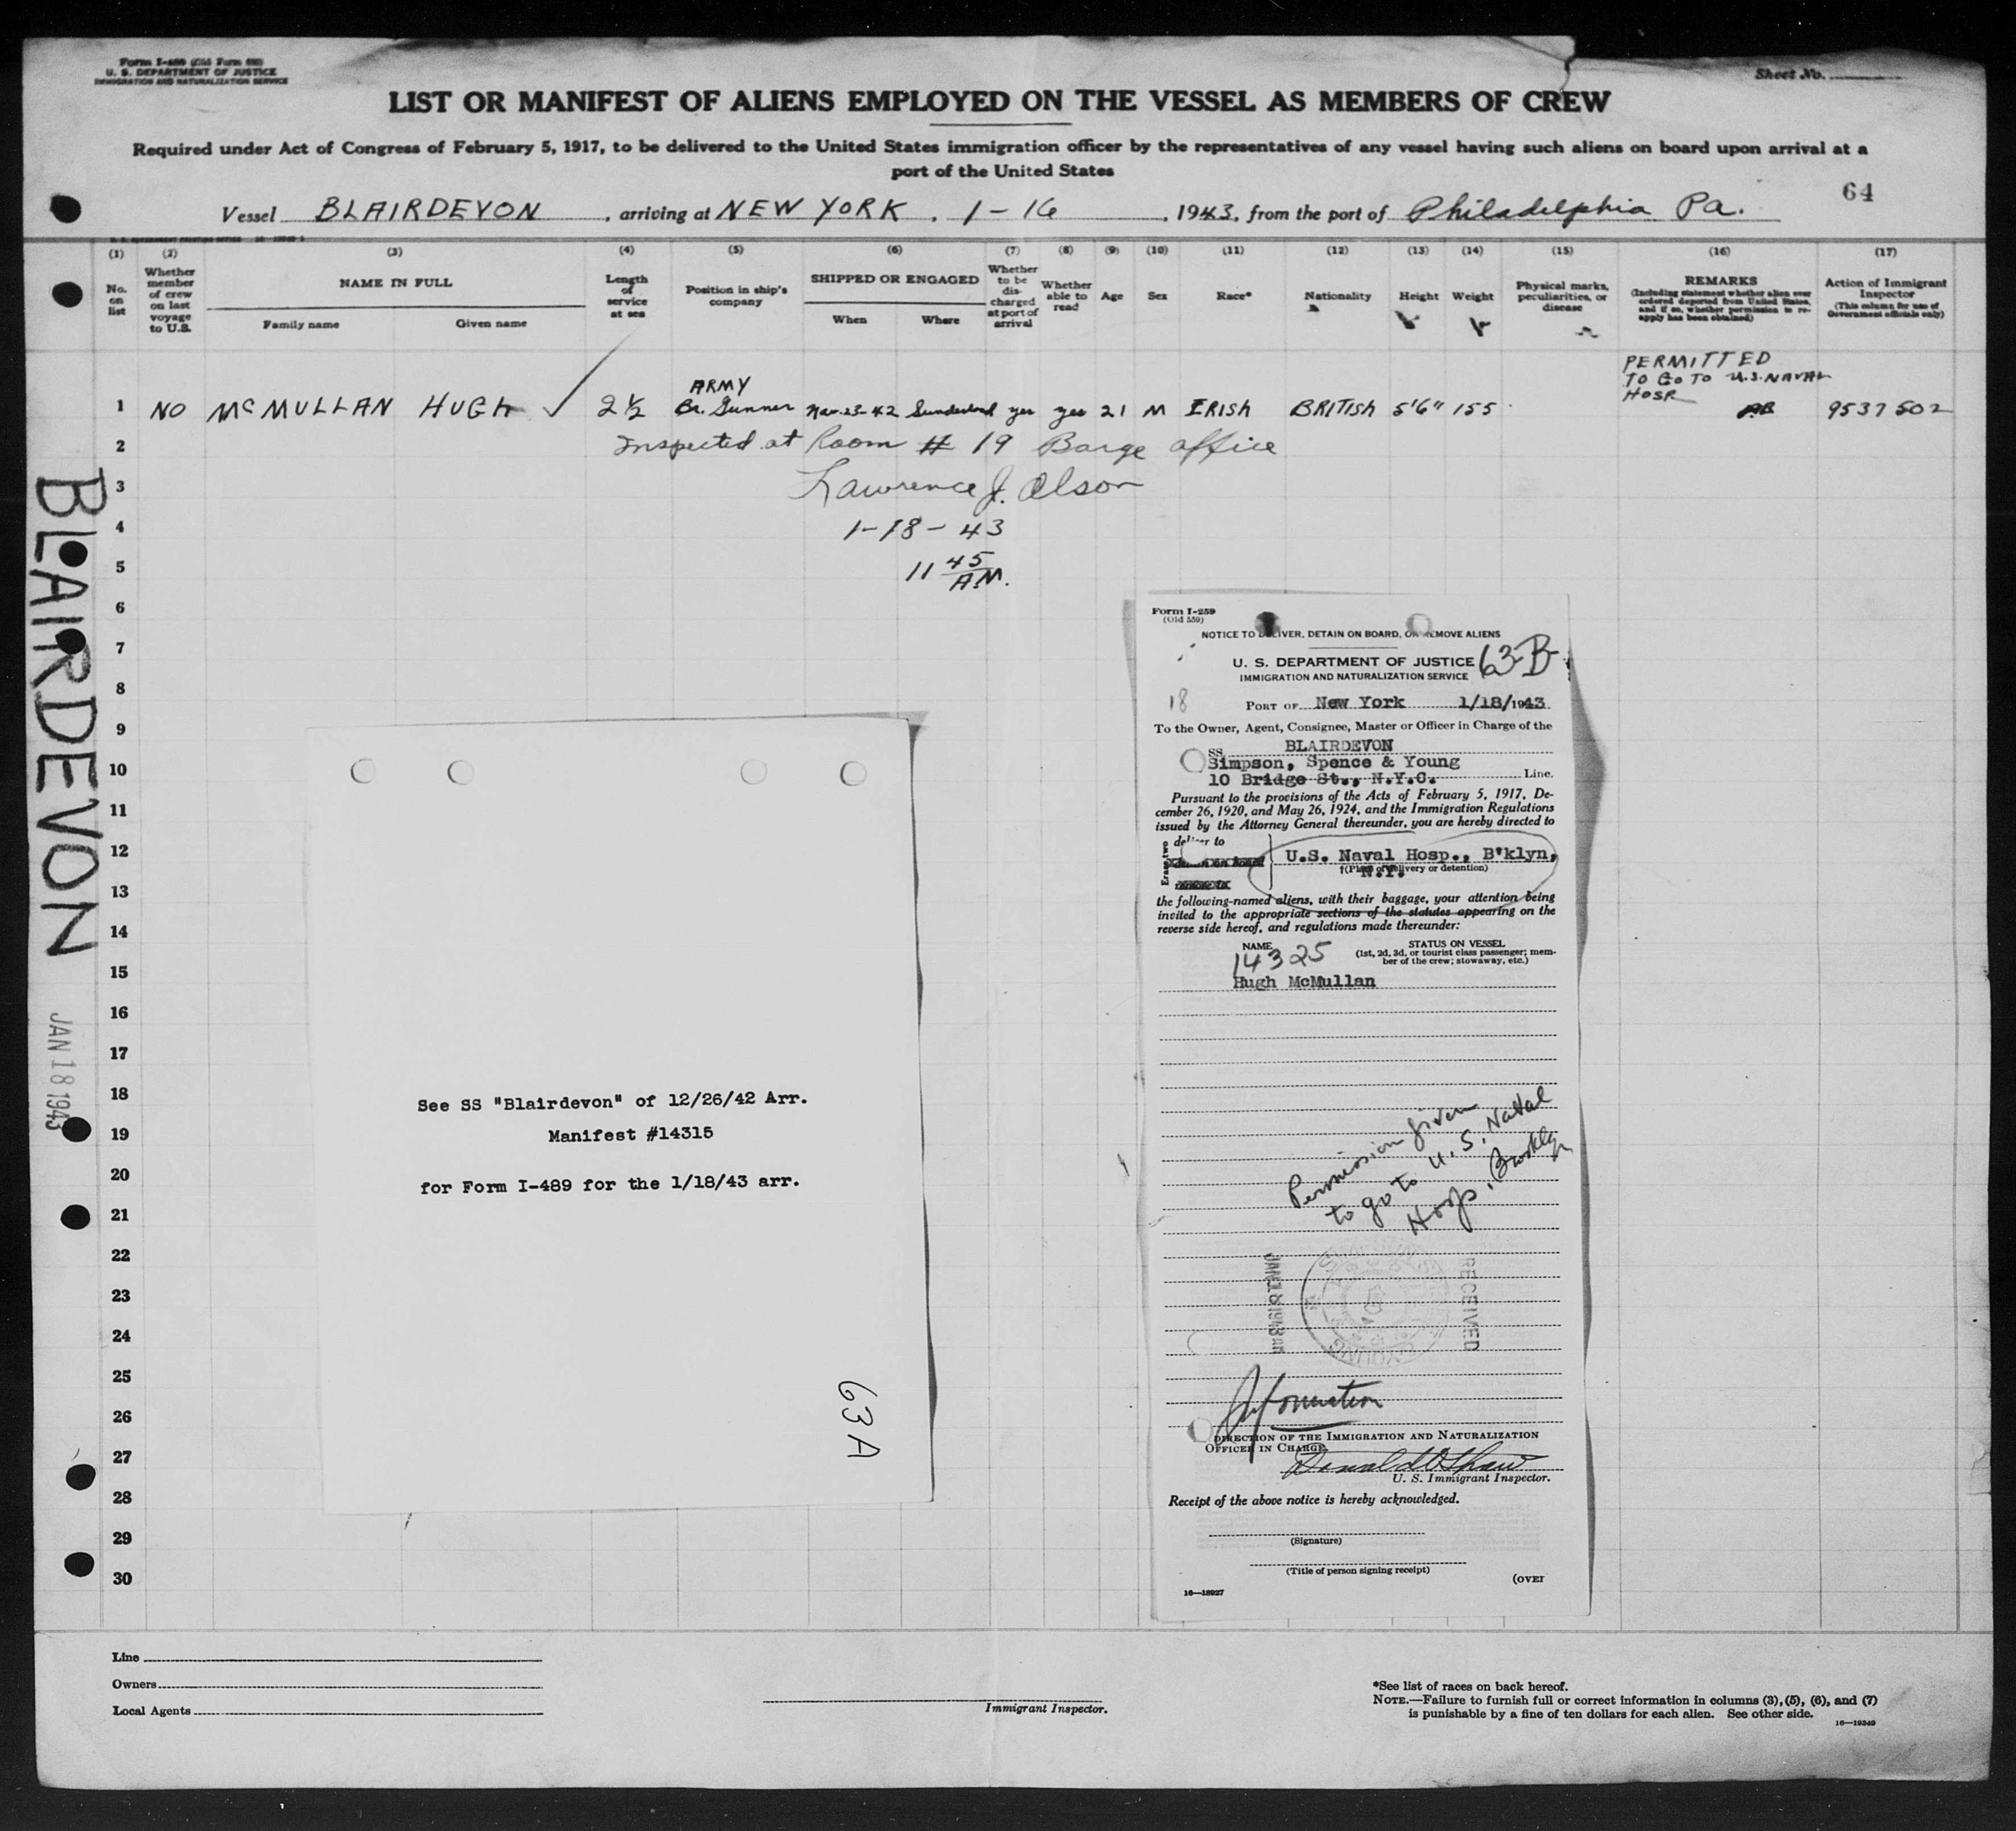 Form I-489 (Old Form 680)
U. S. DEPARTMENT OF JUSTICE
IMMIGRATION AND NATURALIZATION SERVICE
Sheet No.
LIST OR MANIFEST OF ALIENS EMPLOYED ON THE VESSEL AS MEMBERS OF CREW
Required under Act of Congress of February 5, 1917, to be delivered to the United States immigration officer by the representatives of any vessel having such aliens on board upon arrival at a
port of the United States
64
Vessel BLAIRDEVON, arriving at NEW YORK, 1-16, 1943, from the port of Philadelphia Pa.
(1) (2) (3) (4) (5) (6) (7) (8) (9) (10) (11) (12) (13) (14) (15) (16) (17)
No. on list
Whether member of crew on last voyage to U.S.
NAME IN FULL
Family name Given name
Length of service at sea
Position in ship's company
SHIPPED OR ENGAGED
When Where
Whether to be discharged at port of arrival
Whether able to read
Age
Sex
Race*
Nationality
Height
Weight
Physical marks, peculiarities, or disease
REMARKS
(Including statement whether alien ever ordered deported from United States, and if so, whether permission to reapply has been obtained)
Action of Immigrant Inspector
(This column for use of Government officials only)
PERMITTED
TO GO TO U.S. NAVAL
HOSP
ARMY
1 NO McMULLAN HUGH ✓ 2½ Br. Gunner Nov. 23-42 Sunderland yes yes 21 M IRISH BRITISH 5'6" 155 9537502
2 Inspected at Room # 19 Barge office
3 Lawrence J. Olson
4 1-18-43
5 11 45 AM.
6
7
8
9
10
11
12
13
14
15
16
17
18
19
20
21
22
23
24
25
26
27
28
29
30
BLAIRDEVON
JAN 18 1943
See SS "Blairdevon" of 12/26/42 Arr.
Manifest #14315
for Form I-489 for the 1/18/43 arr.
63 A
Form I-259
(Old 559)
NOTICE TO DELIVER, DETAIN ON BOARD, OR REMOVE ALIENS
U. S. DEPARTMENT OF JUSTICE
63-B
IMMIGRATION AND NATURALIZATION SERVICE
18
PORT OF New York 1/18/1943
To the Owner, Agent, Consignee, Master or Officer in Charge of the
SS BLAIRDEVON
Simpson, Spence & Young
10 Bridge St., N.Y.C. Line.
Pursuant to the provisions of the Acts of February 5, 1917, De-
cember 26, 1920, and May 26, 1924, and the Immigration Regulations
issued by the Attorney General thereunder, you are hereby directed to
Erase two
deliver to
U.S. Naval Hosp., B'klyn,
N.Y.
†(Place of delivery or detention)
the following-named aliens, with their baggage, your attention being
invited to the appropriate sections of the statutes appearing on the
reverse side hereof, and regulations made thereunder:
NAME STATUS ON VESSEL
14325 (1st, 2d, 3d, or tourist class passenger; mem-
ber of the crew; stowaway, etc.)
Hugh McMullan
Permission given
to go to U.S. Naval
Hosp. Brooklyn
RECEIVED
JAN 18 1943
Information
DIRECTION OF THE IMMIGRATION AND NATURALIZATION
OFFICER IN CHARGE
Donald O Shaw
U. S. Immigrant Inspector.
Receipt of the above notice is hereby acknowledged.
(Signature)
(Title of person signing receipt)
16—18927
(OVER
Line
Owners
Local Agents
Immigrant Inspector.
*See list of races on back hereof.
NOTE.—Failure to furnish full or correct information in columns (3), (5), (6), and (7)
is punishable by a fine of ten dollars for each alien. See other side.
16—19249